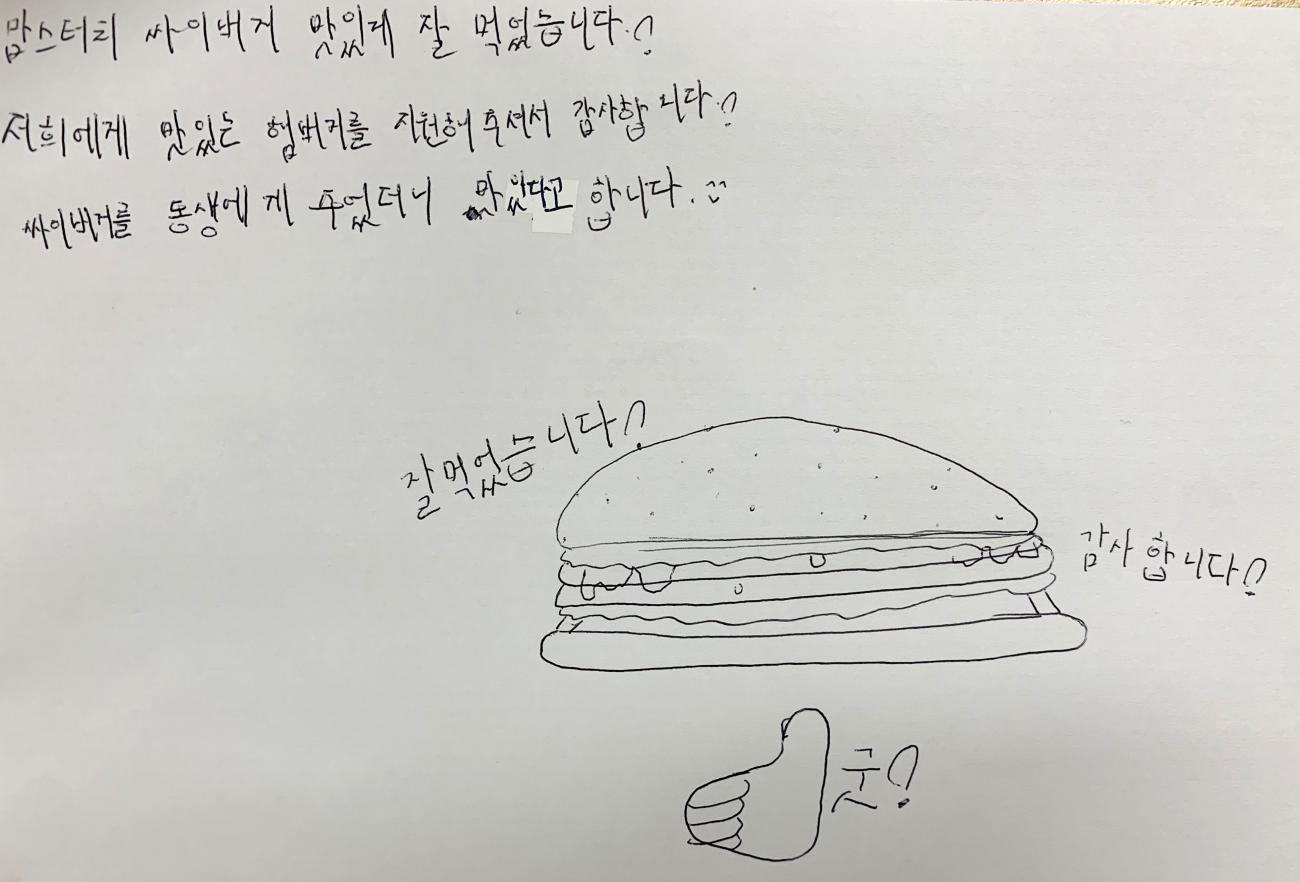 맘스터치 싸이버거 맛있게 잘 먹었습니다.!
저희에게 맛있는 험버거를 지원해 주셔서 감사합니다.!
싸이버거를 동생에게 주었더니 맛있다고 합니다. :)
잘먹었습니다!
감사합니다!
굿!